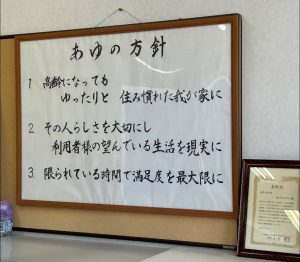 あゆの方針
1 高齢になっても
ゆったりと 住み慣れた我が家に
2. その人らしさを大切にし
利用者様の望んでいる生活を現実に
3. 限られている時間で満足度を最大限に
表彰状